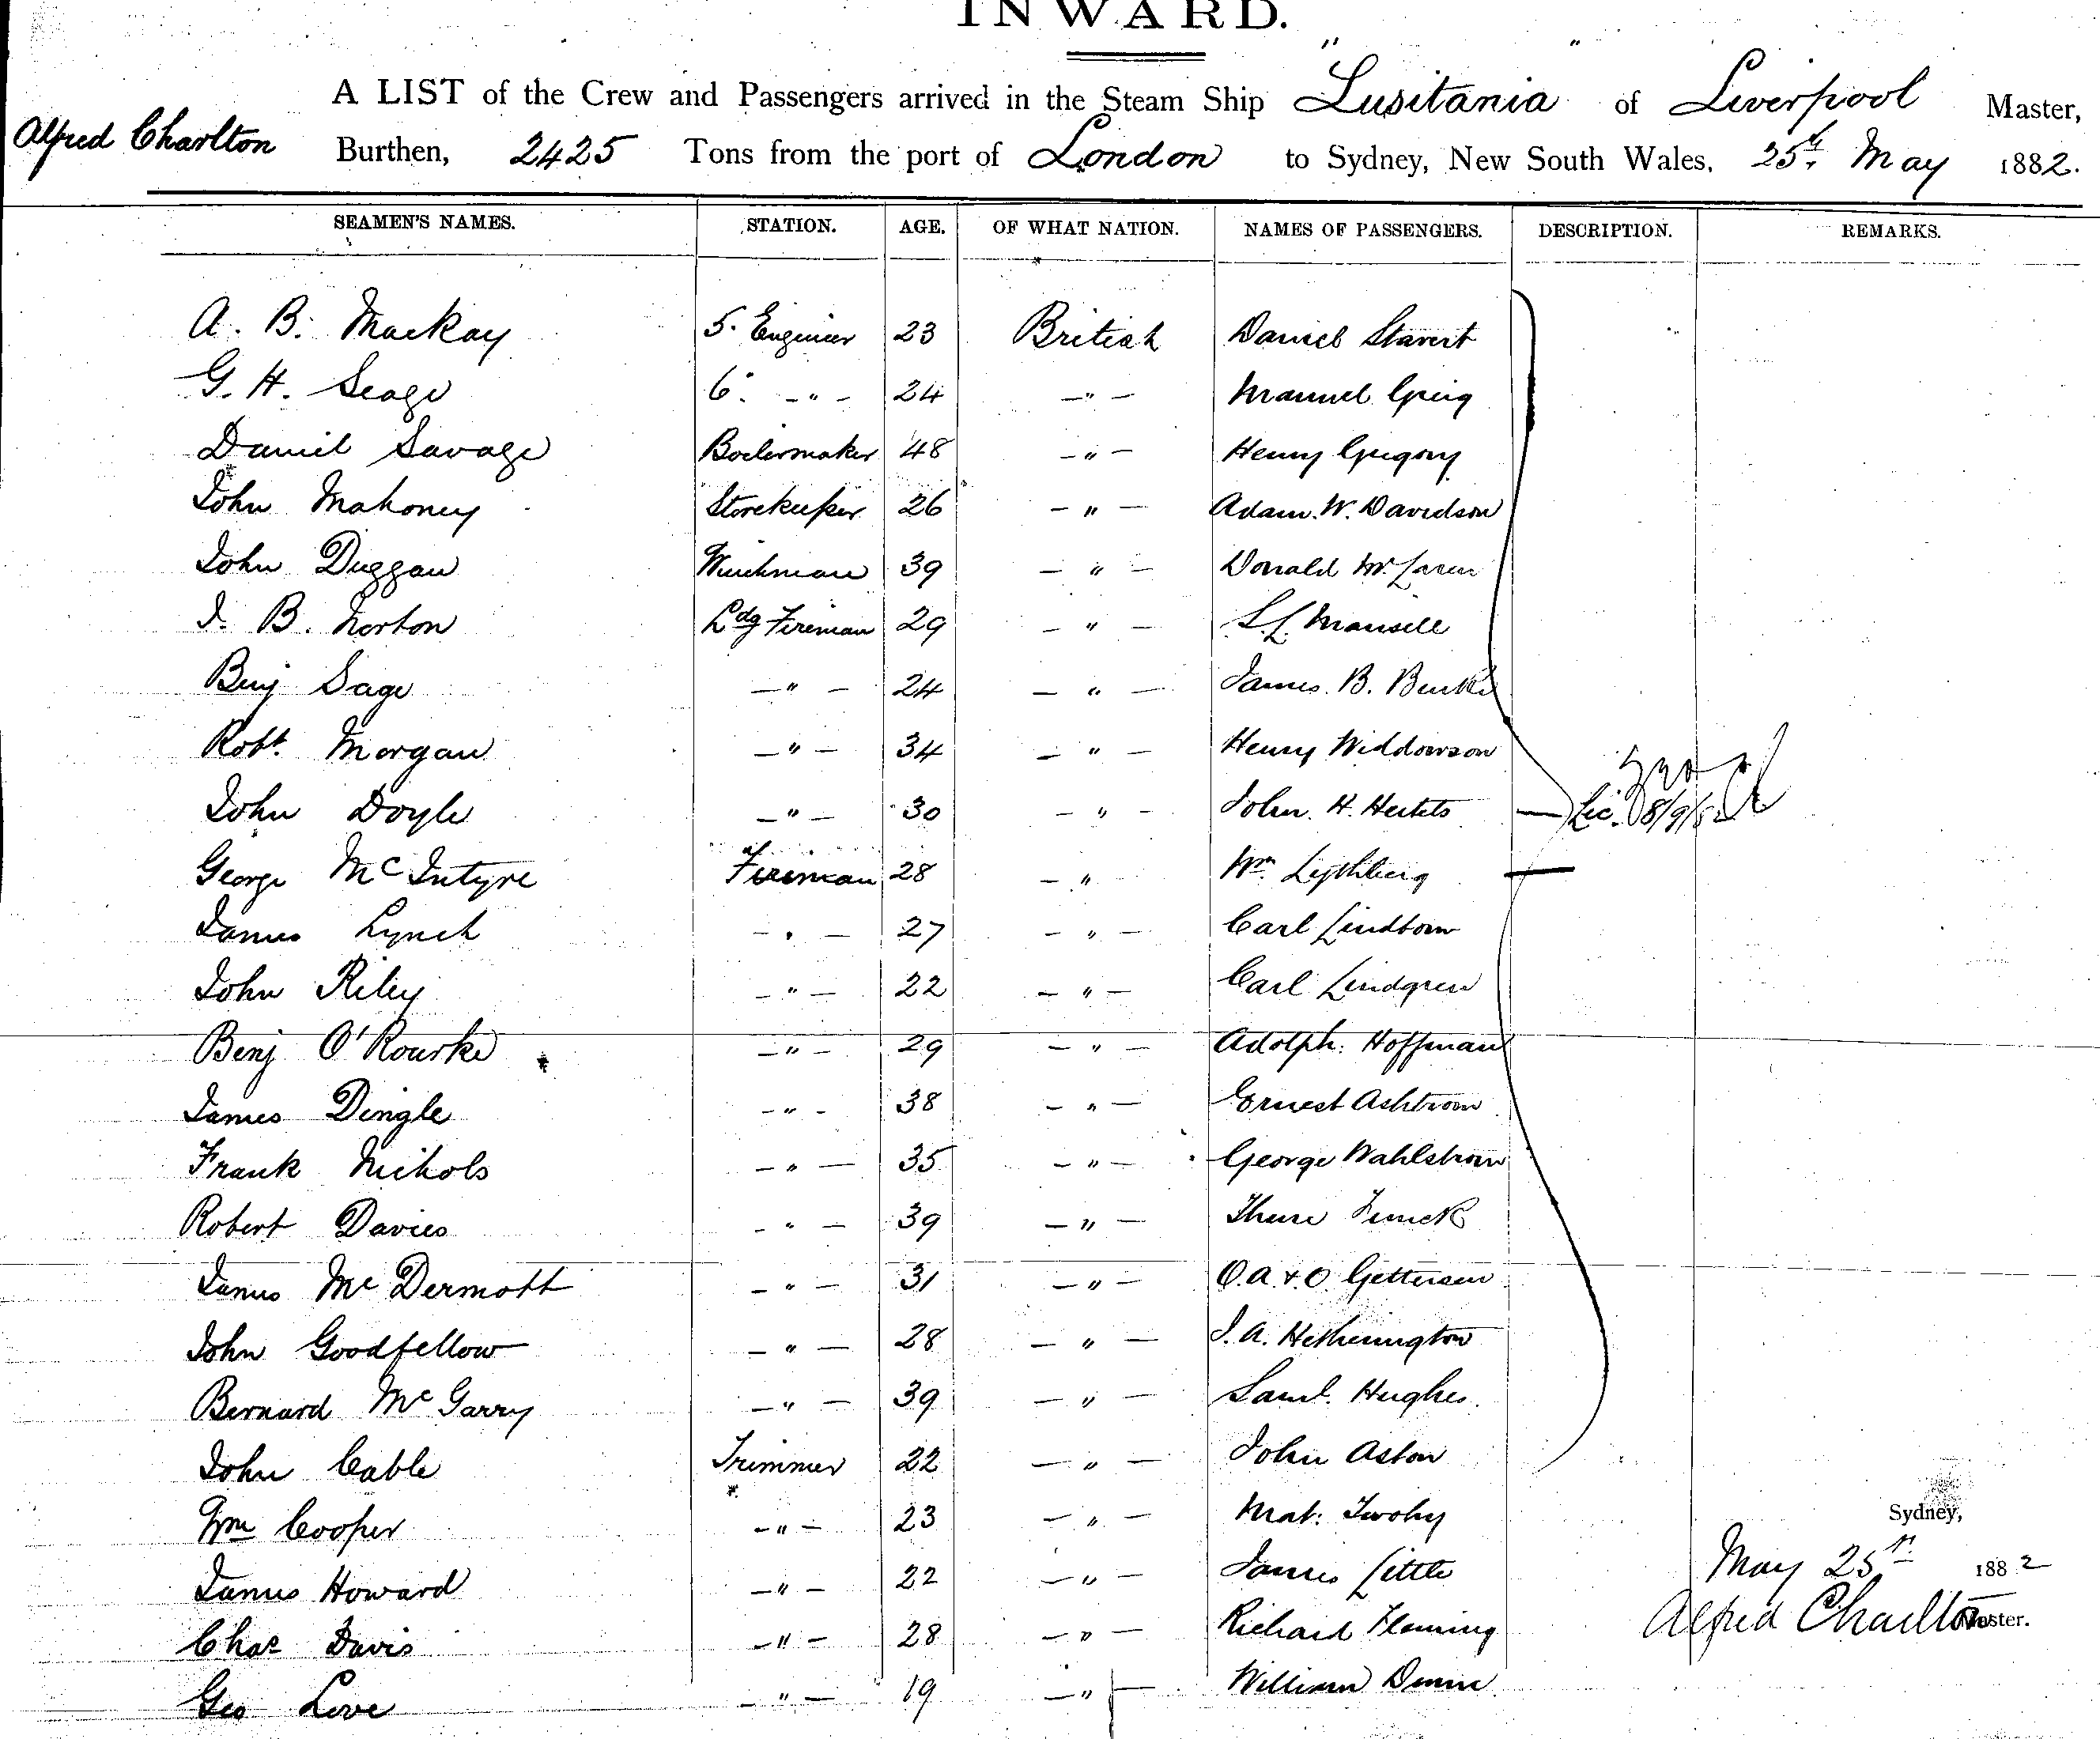 INWARD.
A LIST of the Crew and Passengers arrived in the Steam Ship "Lusitania" of Liverpool Master,
Alfred Charlton Burthen, 2425 Tons from the port of London to Sydney, New South Wales, 25th May 1882.
SEAMEN'S NAMES. STATION. AGE. OF WHAT NATION. NAMES OF PASSENGERS. DESCRIPTION. REMARKS.
A. B. Mackay 5. Engineer 23 British Daniel Stavert
G. H. Seage 6. - " - 24 - " - Manuel Greig
Daniel Savage Boilermaker 48 - " - Henry Gregory
John Mahoney Storekeeper 26 - " - Adam. W. Davidson
John Duggan Winchman 39 - " - Donald McLaren
J. B. Norton Ldg Fireman 29 - " - S. L. Mansell
Benj Sage - " - 24 - " - James. B. Burke
Robt. Morgan - " - 34 - " - Henry Widdowson
John Doyle - " - 30 - " - John. H.
George McIntyre Fireman 28 - " Wm.
James Lynch - " - 27 - " - Carl Lindbom
John Riley - " - 22 - " - Carl Lindgren
Benj O'Rourke - " - 29 - " - Adolph. Hoffman
James Dingle - " - 38 - " - Ernest Ashtrom
Frank Nichols - " - 35 - " - George Wahlstrom
Robert Davies - " - 39 - " - Thure
James McDermott - " - 31 - " - O. A. & O. Gettersen
John Goodfellow - " - 28 - " - J. A. Hetherington
Bernard McGarry - " - 39 - " - Saml. Hughes.
John Cable Trimmer 22 - " - John Aston
Wm Cooper - " - 23 - " - Mat: Twohy
James Howard - " - 22 - " - James Little
Chas Davis - " - 28 - " - Richard Fleming
Geo Love - " - 19 - " - William Dunne
Sydney,
May 25th 1882
Alfred Charlton Master.